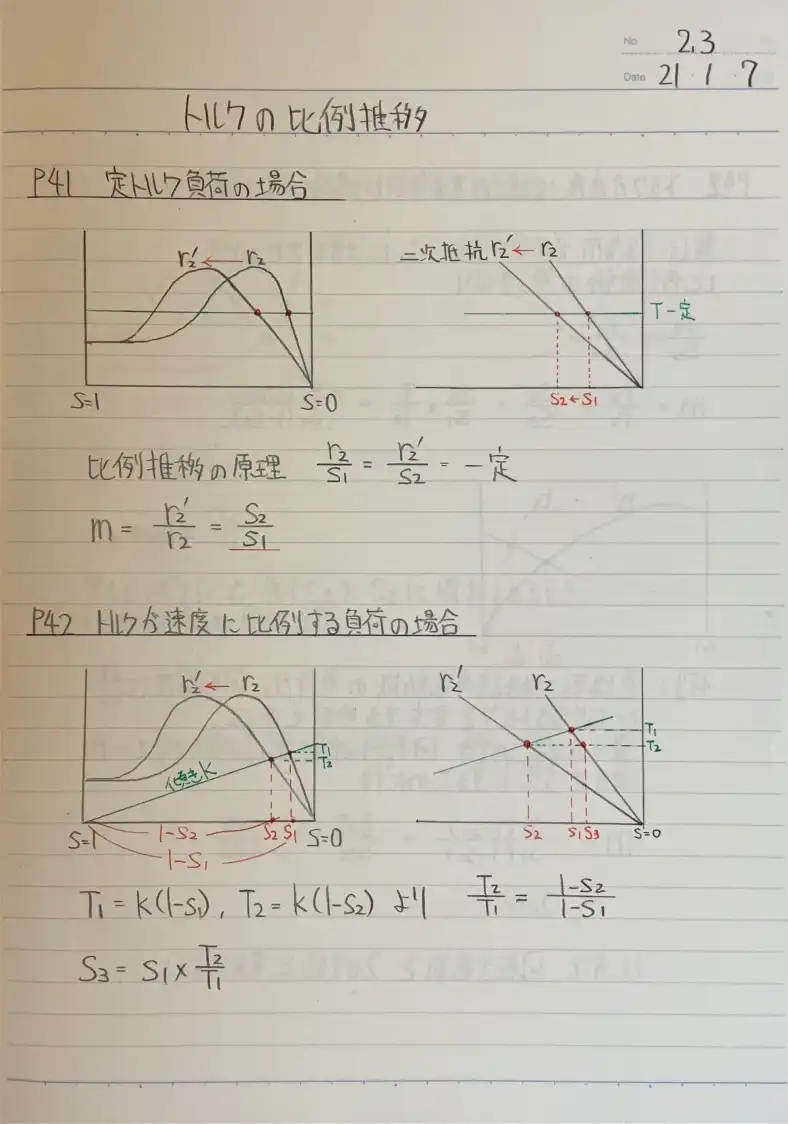 No 2.3
Date 21 1 7
トルクの比例推移
P41 定トルク負荷の場合
r₂′←r₂
S=1 S=0
二次抵抗r₂′←r₂
T一定
S₂←S₁
比例推移の原理 r₂/S₁ = r₂′/S₂ = 一定
m = r₂′/r₂ = S₂/S₁
P42 トルクが速度に比例する負荷の場合
r₂′←r₂
T₁
T₂
傾きK
S₂ S₁
S=1 1-S₂ S=0
1-S₁
r₂′ r₂
T₁
T₂
S₂ S₁ S₃ S=0
T₁ = K(1-S₁), T₂ = K(1-S₂) より T₂/T₁ = 1-S₂/1-S₁
S₃ = S₁ × T₂/T₁